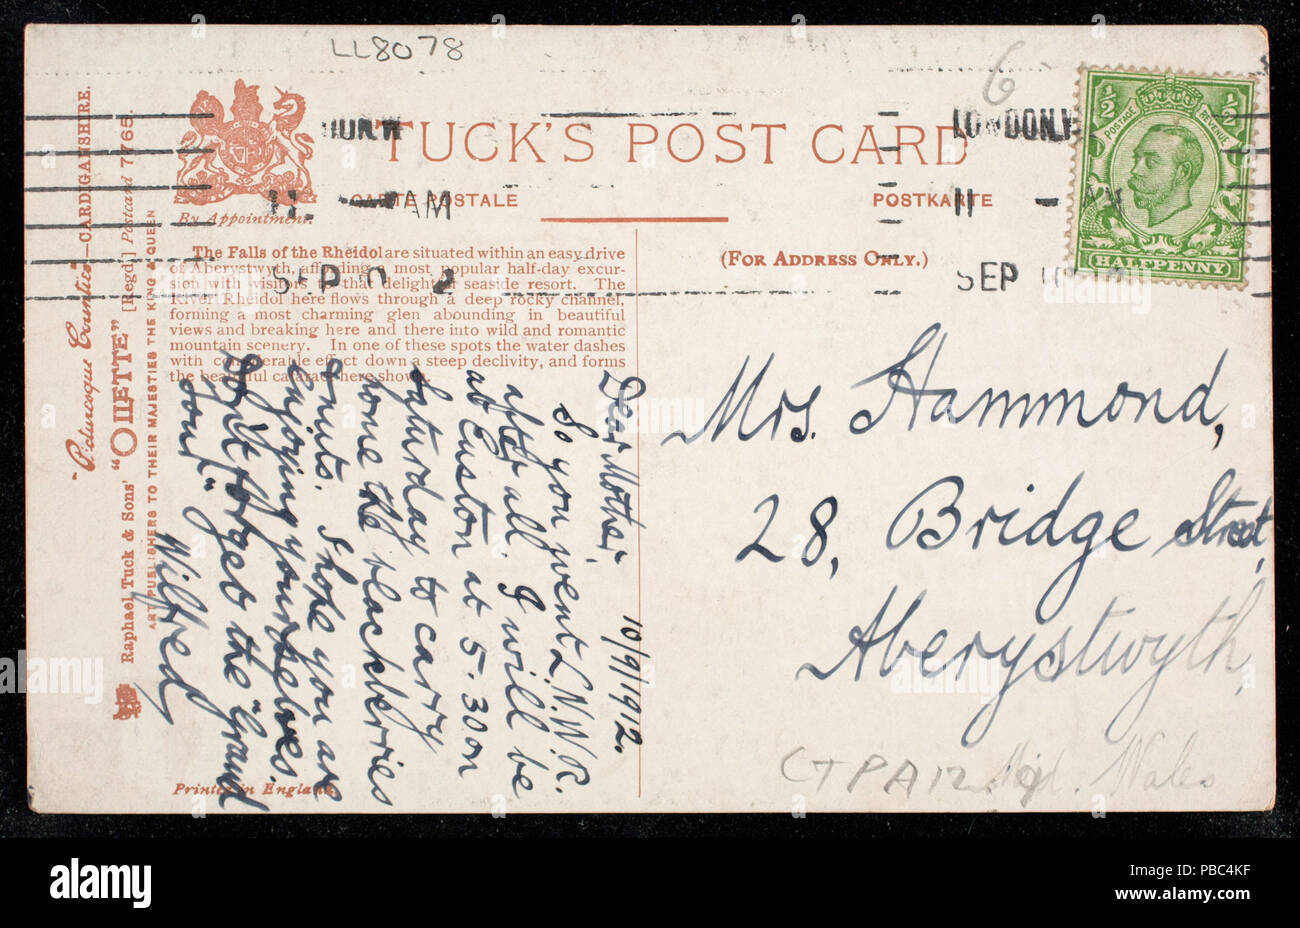 LL8078
6
"Picturesque Counties"—CARDIGANSHIRE.
Raphael Tuck & Sons' "OILETTE" [Regd.] Postcard 7765.
ART PUBLISHERS TO THEIR MAJESTIES THE KING & QUEEN
By Appointment.
TUCK'S POST CARD
CARTE POSTALE
POSTKARTE
(FOR ADDRESS ONLY.)
LONDON.N.W
11 - AM
SEP 10
LONDON.N.W
11 - AM
SEP 10
½ POSTAGE REVENUE ½
HALFPENNY
The Falls of the Rheidol are situated within an easy drive
of Aberystwyth, affording a most popular half-day excur-
sion with visitors to that delightful seaside resort. The
River Rheidol here flows through a deep rocky channel,
forming a most charming glen abounding in beautiful
views and breaking here and there into wild and romantic
mountain scenery. In one of these spots the water dashes
with considerable effect down a steep declivity, and forms
the beautiful cataract here shown.
10/9/1912.
Dear Mother,
So you went L.N.W.R.
after all. I will be
at Euston at 5.30 on
Saturday to carry
home the blackberries
& nuts. Hope you are
enjoying yourselves.
Don't forget the "Grand
Tour"
Wilfred
Mrs. Hammond,
28, Bridge Street,
Aberystwyth,
Wales
Printed in England.
alamy
Image ID: PBC4KF
www.alamy.com